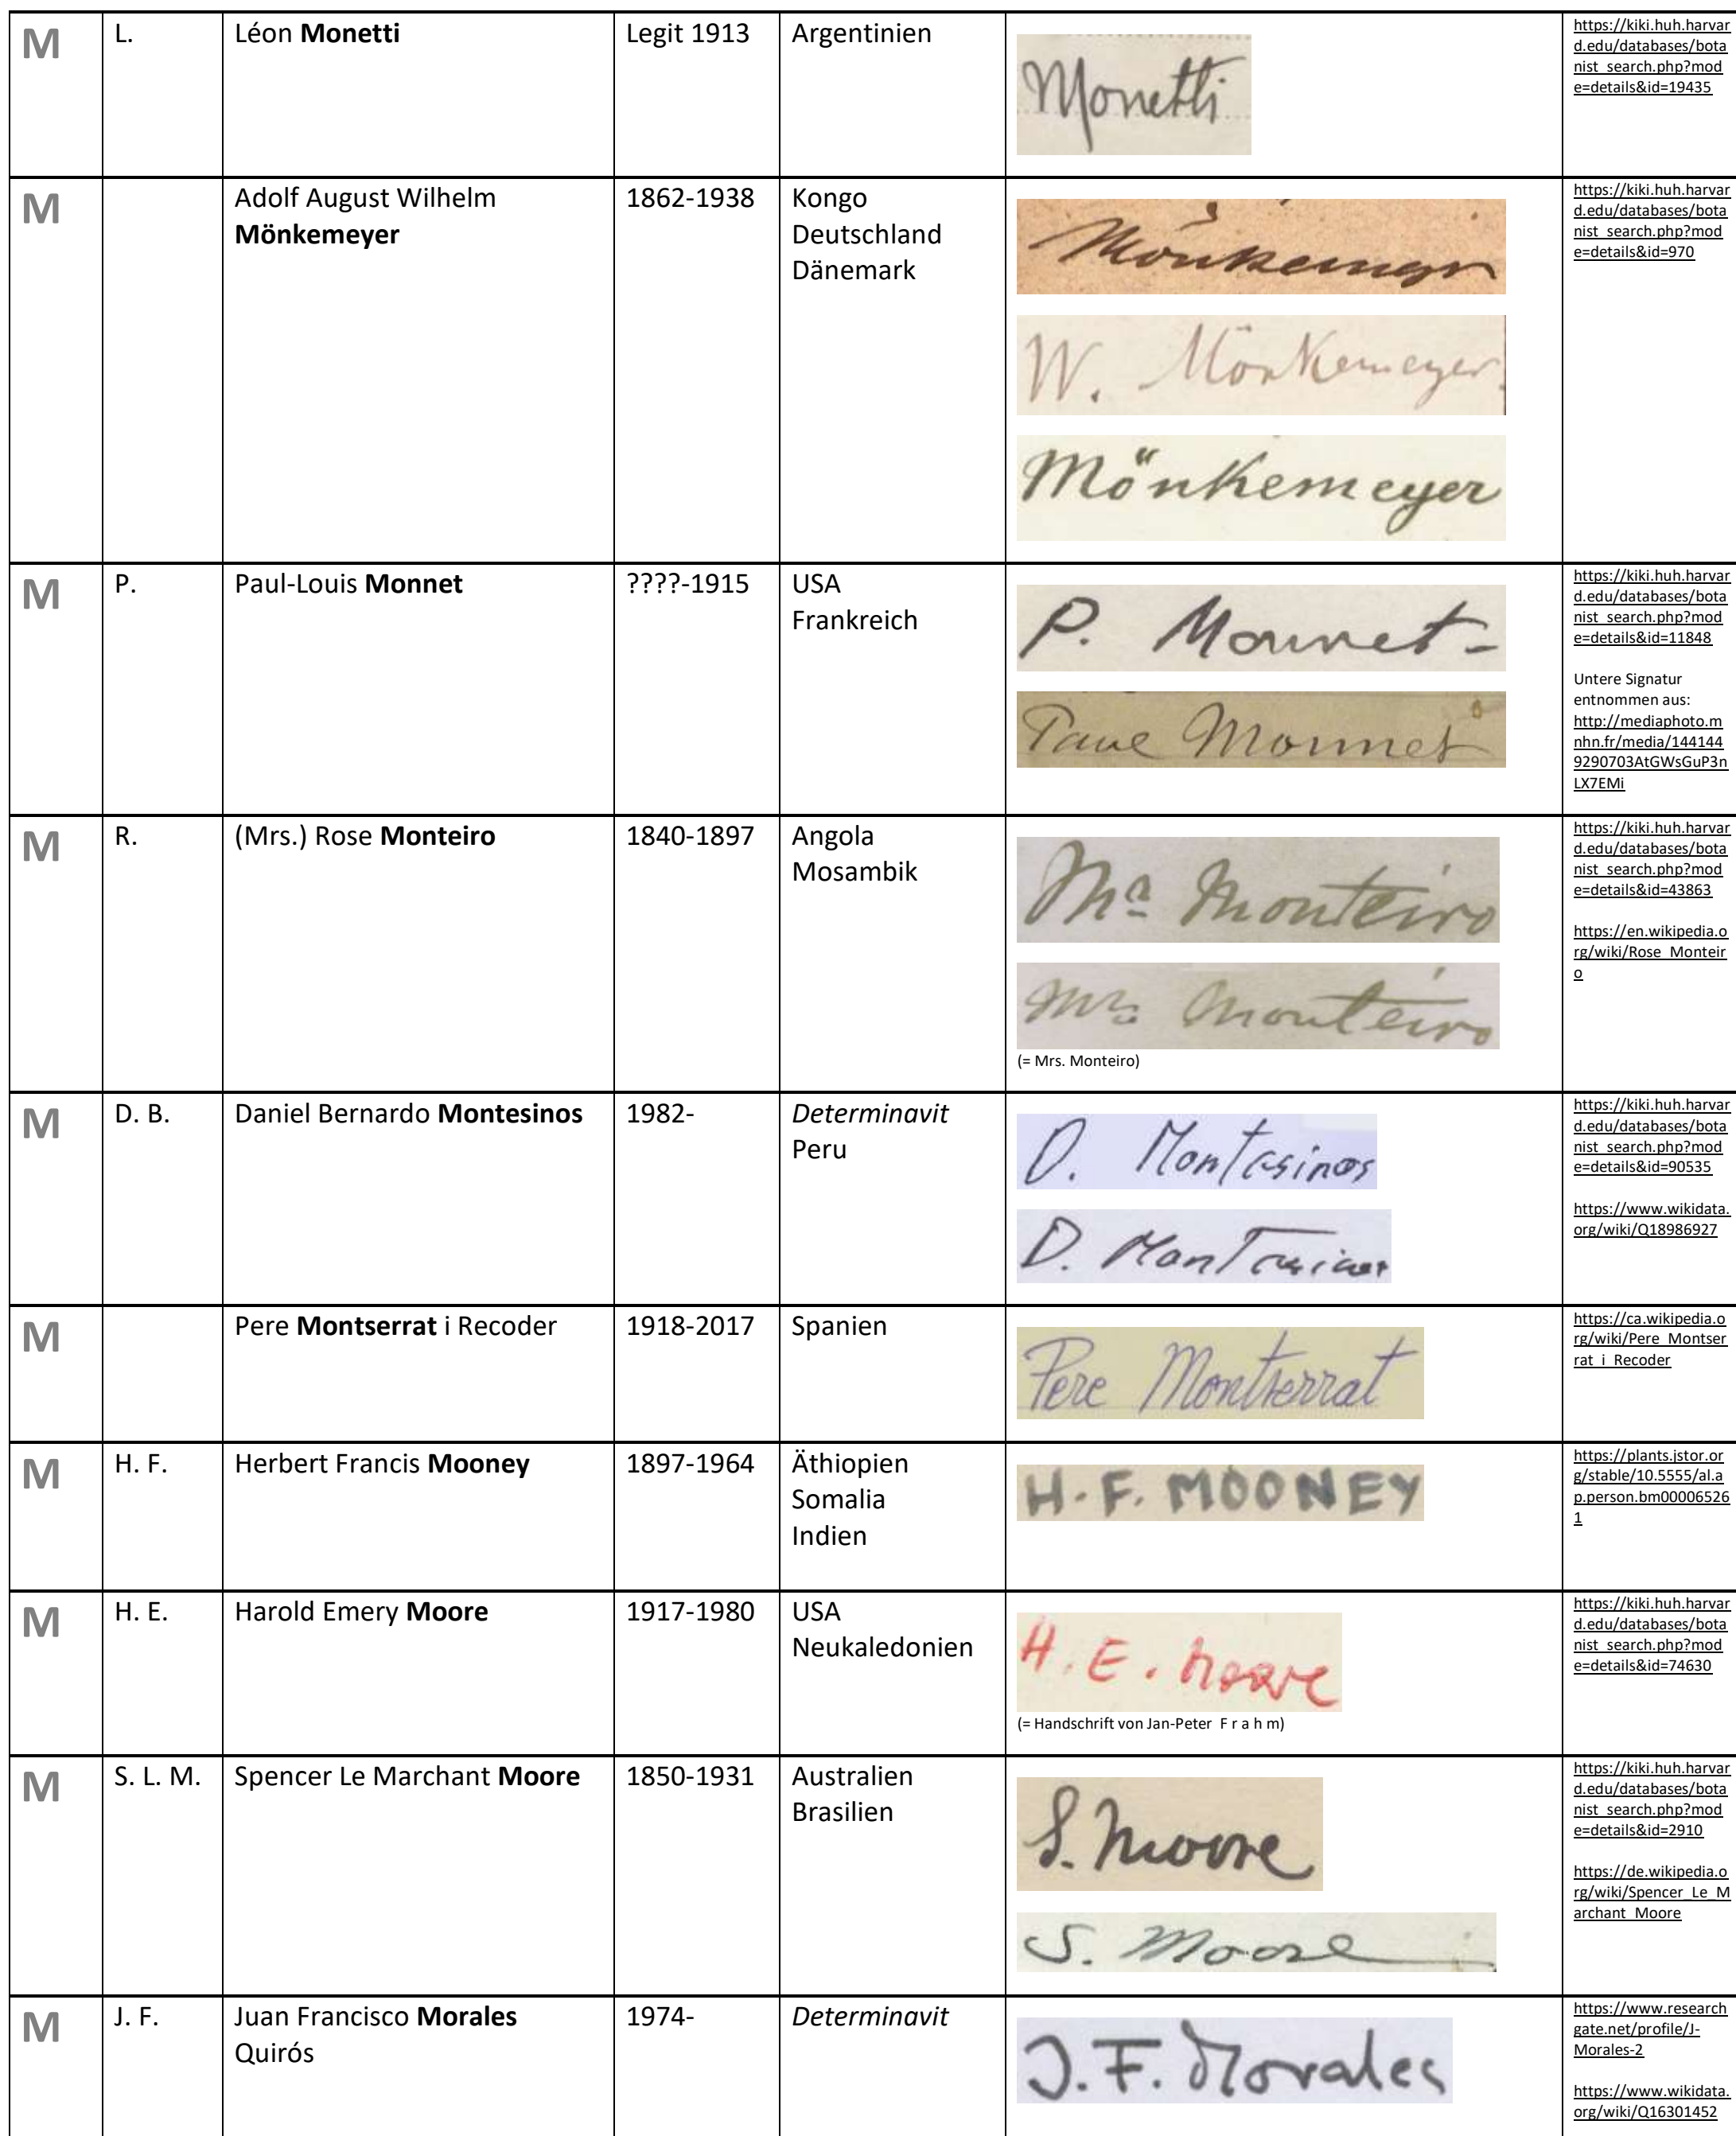 M L. Léon Monetti Legit 1913 Argentinien
Monetti
https://kiki.huh.harvar
d.edu/databases/bota
nist_search.php?mod
e=details&id=19435
M Adolf August Wilhelm
Mönkemeyer
1862-1938
Kongo
Deutschland
Dänemark
Mönkemeyer
W. Mönkemeyer.
Mönkemeyer
https://kiki.huh.harvar
d.edu/databases/bota
nist_search.php?mod
e=details&id=970
M P. Paul-Louis Monnet ????-1915
USA
Frankreich
P. Monnet-
Paul Monnet
https://kiki.huh.harvar
d.edu/databases/bota
nist_search.php?mod
e=details&id=11848
Untere Signatur
entnommen aus:
http://mediaphoto.m
nhn.fr/media/144144
9290703AtGWsGuP3n
LX7EMi
M R. (Mrs.) Rose Monteiro 1840-1897
Angola
Mosambik
Monteiro
Mrs Monteiro
(= Mrs. Monteiro)
https://kiki.huh.harvar
d.edu/databases/bota
nist_search.php?mod
e=details&id=43863
https://en.wikipedia.o
rg/wiki/Rose_Monteir
o
M D. B. Daniel Bernardo Montesinos 1982-
Determinavit
Peru
D. Montesinos
D. Montesinos
https://kiki.huh.harvar
d.edu/databases/bota
nist_search.php?mod
e=details&id=90535
https://www.wikidata.
org/wiki/Q18986927
M Pere Montserrat i Recoder 1918-2017 Spanien
Pere Montserrat
https://ca.wikipedia.o
rg/wiki/Pere_Montser
rat_i_Recoder
M H. F. Herbert Francis Mooney 1897-1964
Äthiopien
Somalia
Indien
H. F. MOONEY
https://plants.jstor.or
g/stable/10.5555/al.a
p.person.bm00006526
1
M H. E. Harold Emery Moore 1917-1980
USA
Neukaledonien
H. E. Moore
(= Handschrift von Jan-Peter F r a h m)
https://kiki.huh.harvar
d.edu/databases/bota
nist_search.php?mod
e=details&id=74630
M S. L. M. Spencer Le Marchant Moore 1850-1931
Australien
Brasilien
S. Moore
S. Moore
https://kiki.huh.harvar
d.edu/databases/bota
nist_search.php?mod
e=details&id=2910
https://de.wikipedia.o
rg/wiki/Spencer_Le_M
archant_Moore
M J. F. Juan Francisco Morales
Quirós
1974-
Determinavit
J. F. Morales
https://www.research
gate.net/profile/J-
Morales-2
https://www.wikidata.
org/wiki/Q16301452